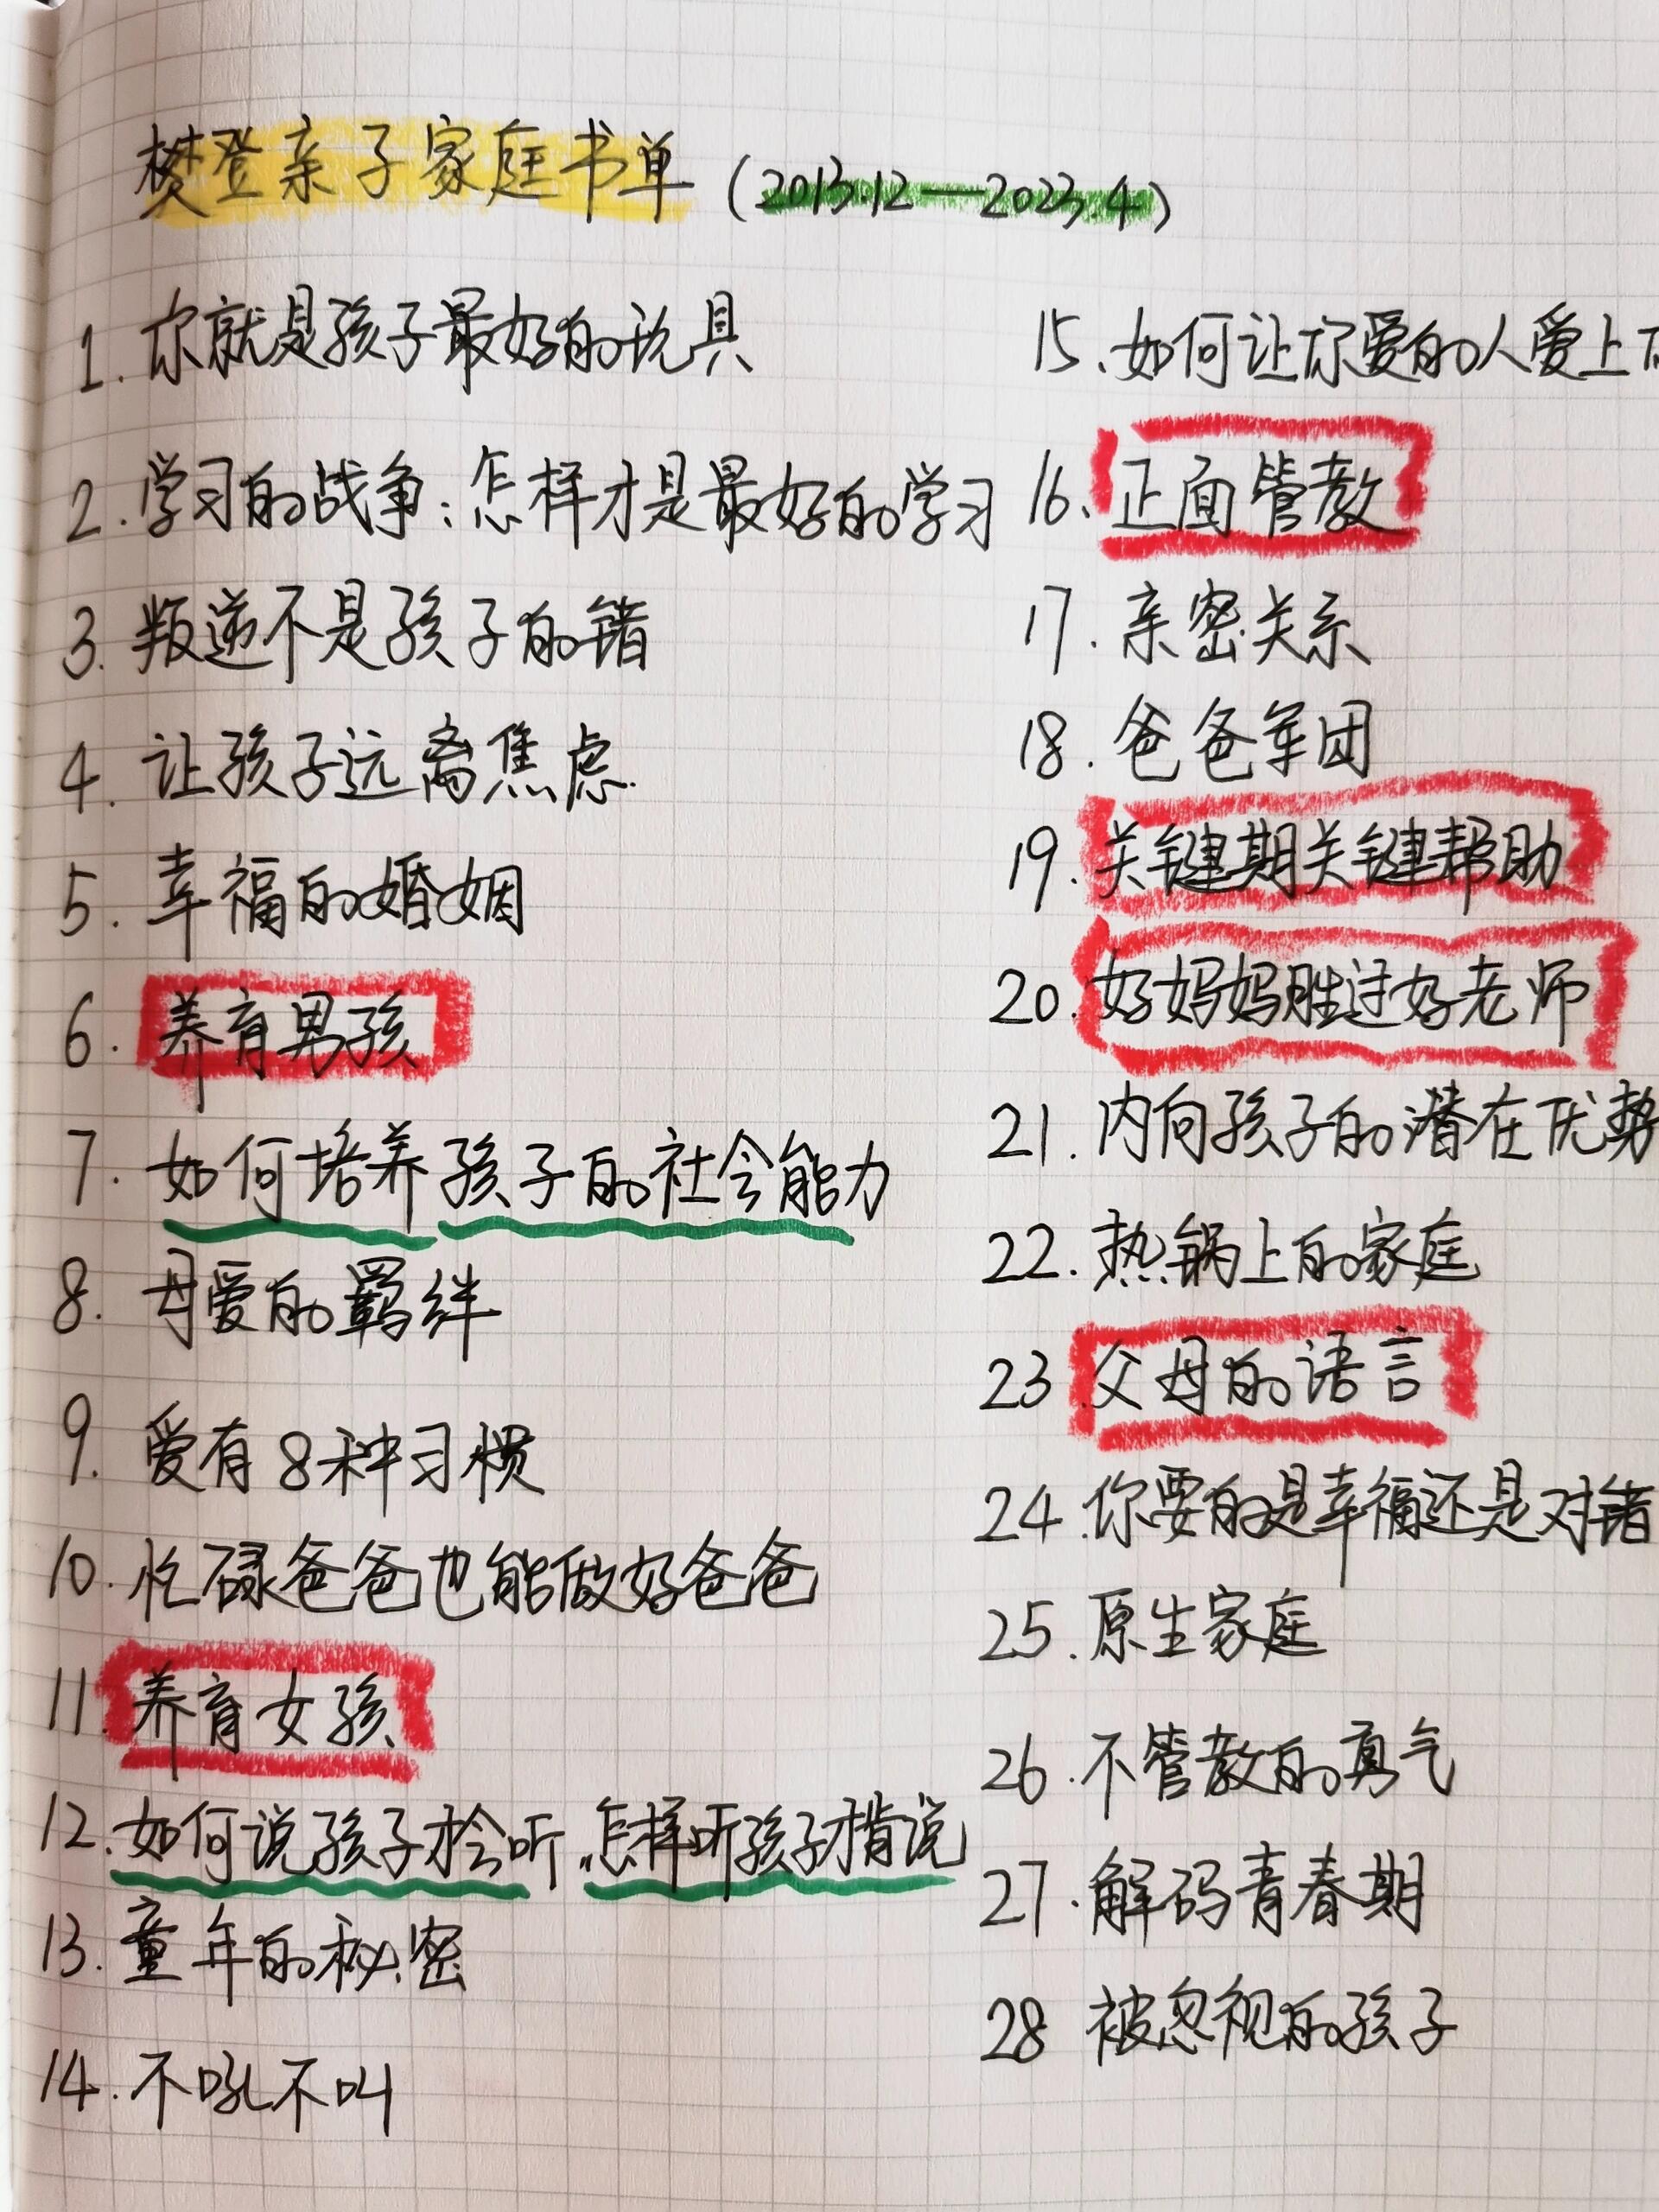 樊登亲子家庭书单(2013.12—2023.4)
1.你就是孩子最好的玩具
2.学习的战争:怎样才是最好的学习
3.叛逆不是孩子的错
4.让孩子远离焦虑.
5.幸福的婚姻
6.养育男孩
7.如何培养孩子的社会能力
8.母爱的羁绊
9.爱有8种习惯
10.忙碌爸爸也能做好爸爸
11.养育女孩
12.如何说孩子才会听,怎样听孩子才肯说
13.童年的秘密
14.不吼不叫
15、如何让你爱的人爱上
16、正面管教
17.亲密关系
18.爸爸军团
19.关键期关键帮助
20.好妈妈胜过好老师
21.内向孩子的潜在优势
22.热锅上的家庭
23 父母的语言
24.你要的是幸福还是对错
25.原生家庭
26.不管教的勇气
27.解码青春期
28 被忽视的孩子